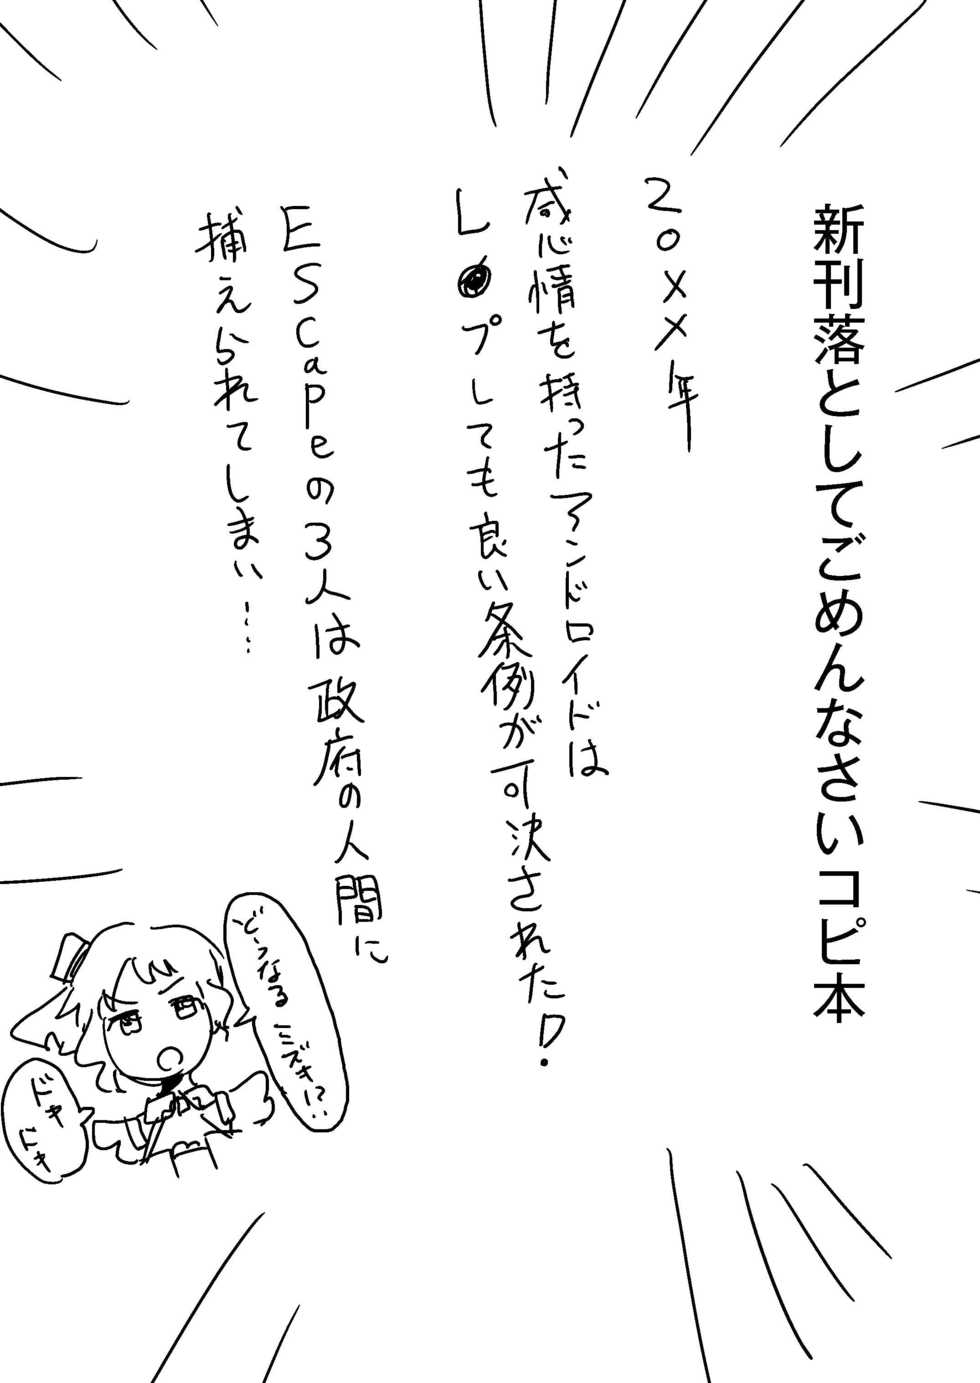 新刊落としてごめんなさいコピ本
20XX年
感情を持ったアンドロイドは
レ●プしても良い条例が可決された!
EScapeの3人は政府の人間に
捕えられてしまい……
どうなるミズキ!?
ドキ
ドキ